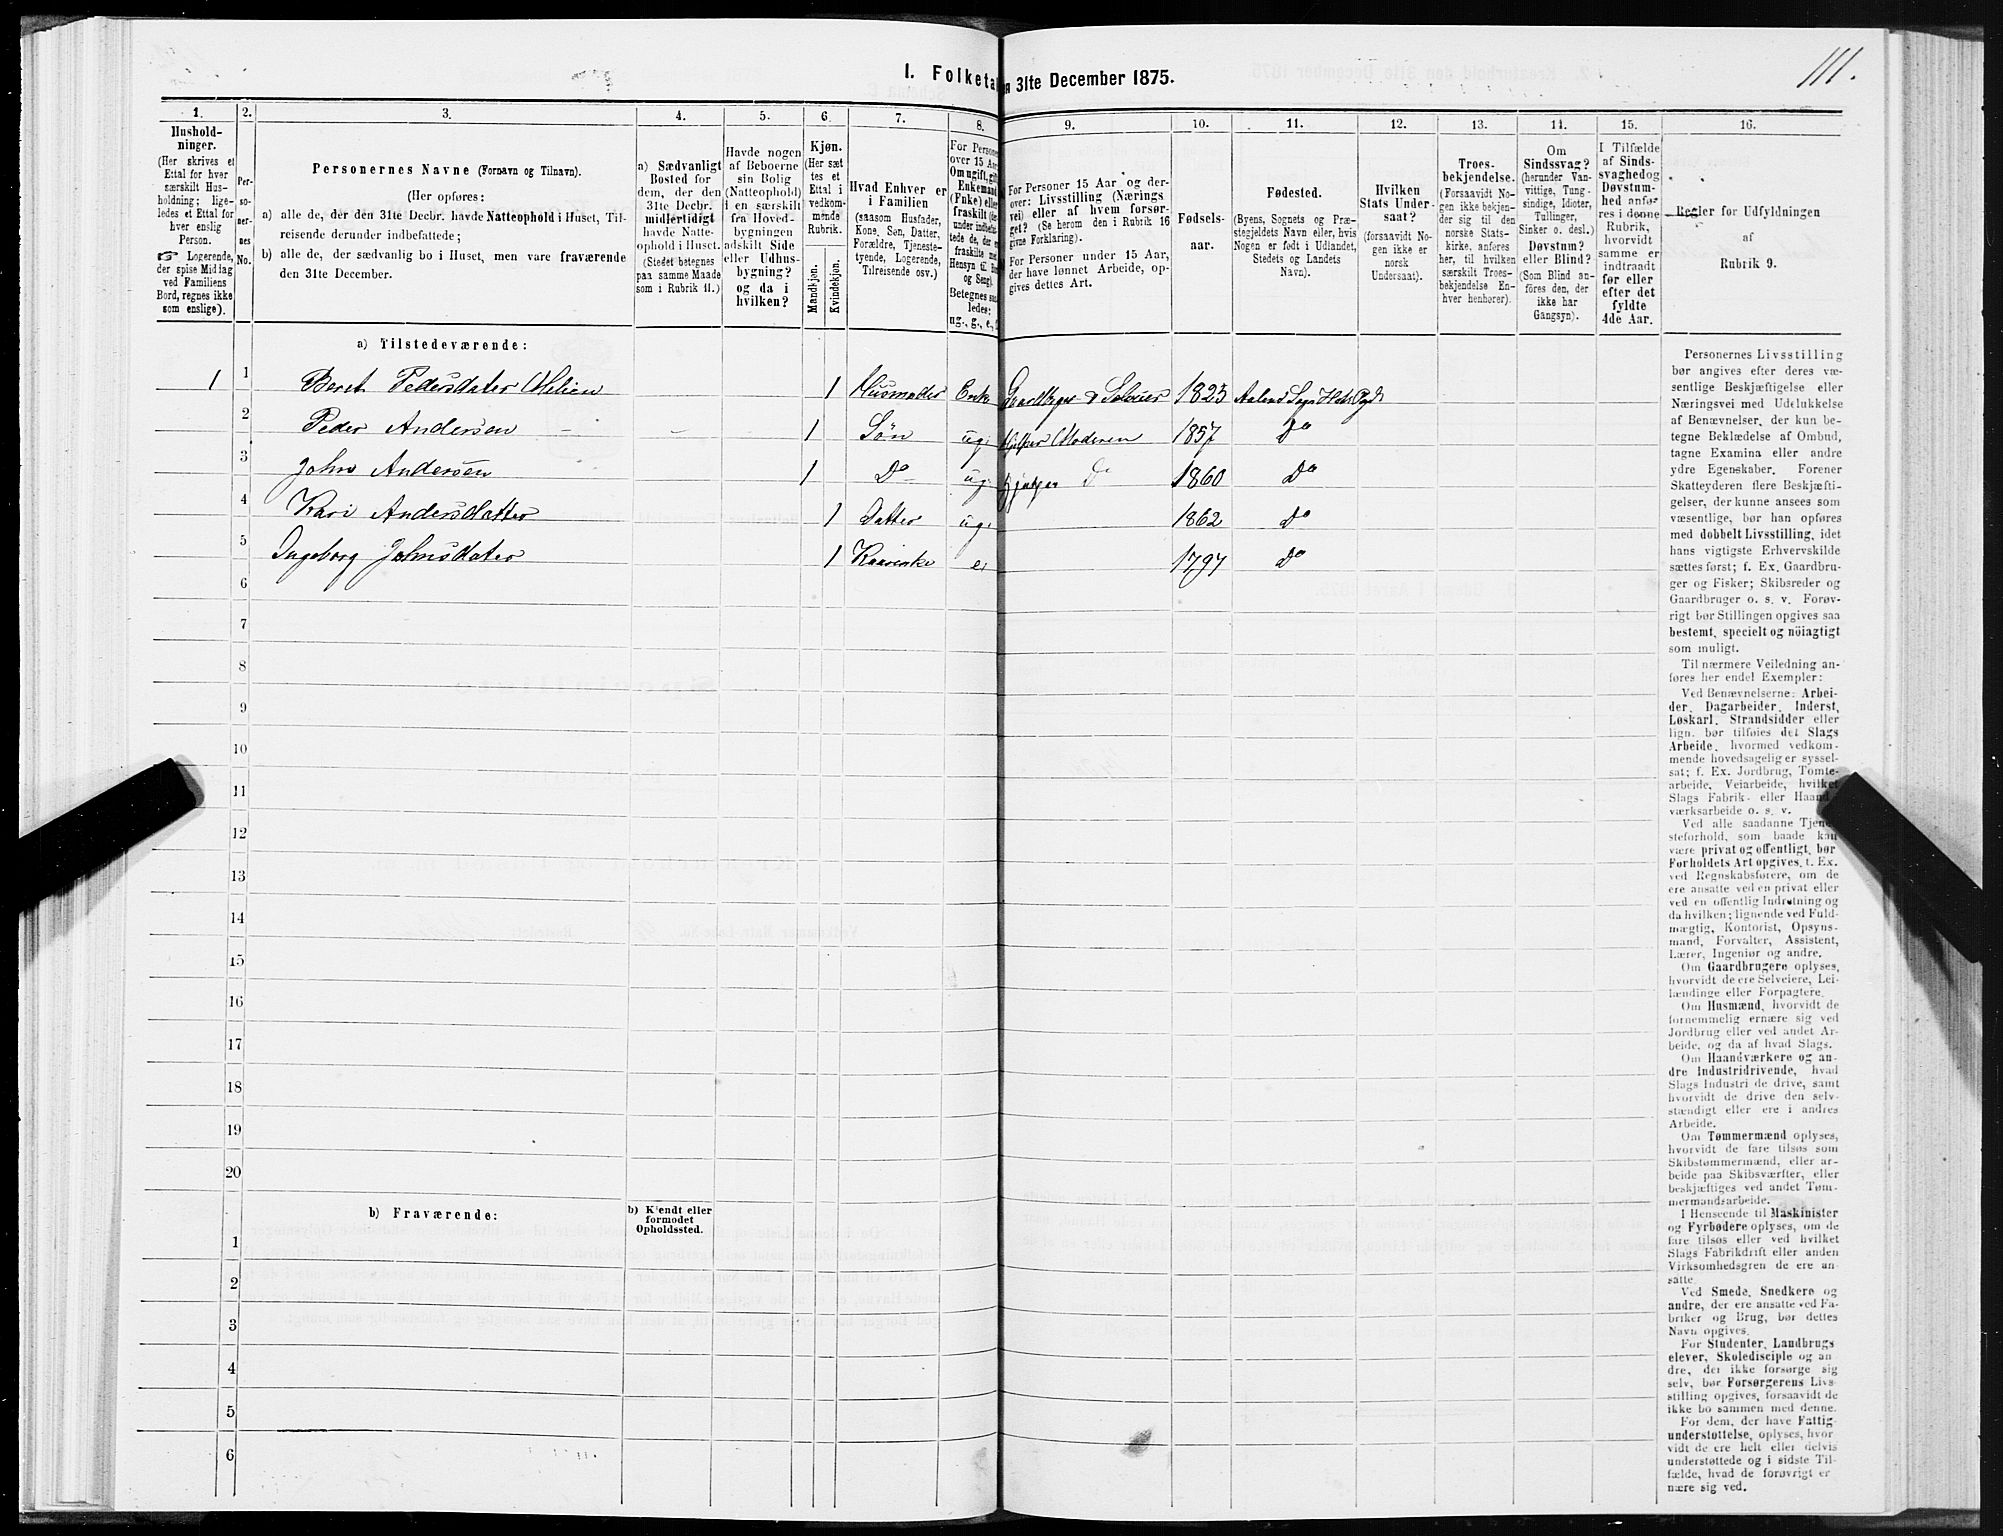 111.
I. Folketal
n 31te December 1875.
1. 2. 3. 4. 5. 6. 7. 8. 9. 10. 11. 12. 13. 14. 15. 16.
Hushold-
ninger.
(Her skrives et
Ettal for hver
særskilt Hus-
holdning; lige-
ledes et Ettal for
hver enslig
Person.
☞ Logerende,
der spise Middag
ved Familiens
Bord, regnes ikke
som enslige).
Per-
so-
ner-
nes
No.
Personernes Navne (Fornavn og Tilnavn).
(Her opføres:
a) alle de, der den 31te Decbr. havde Natteophold i Huset, Til-
reisende derunder indbefattede;
b) alle de, der sædvanlig bo i Huset, men vare fraværende
den 31te December.
a) Sædvanligt
Bosted for
dem, der den
31te Decbr.
midlertidigt
havde Natte-
ophold i Huset.
(Stedet betegnes
paa samme Maade
som i Rubrik 11.)
Havde nogen
af Beboerne
sin Bolig
(Natteophold)
i en særskilt
fra Hoved-
bygningen
adskilt Side
eller Udhus-
bygning?
og da i
hvilken?
Kjøn.
(Her sæt
tes et
Ettal i
vedkom-
mende
Rubrik.
Mandkjøn.
Kvindekjøn.
Hvad Enhver er
i Familien
(saasom Husfader,
Kone, Søn, Datter,
Forældre, Tjeneste-
tyende, Logerende,
Tilreisende osv.)
For Persone
over 15 Aar
Om ugift, gift
Enkemand
(Enke) eller
fraskilt
Betegnes saa
ledes:
ug., g., e.,
For Personer 15 Aar og der-
over: Livsstilling (Nærings
vei) eller af hvem forsør-
get? (Se herom den i Rubrik 16
givne Forklaring).
For Personer under 15 Aar,
der have lønnet Arbeide, op-
gives dettes Art.
Fødsels-
aar.
Fødested.
(Byens, Sognets og Præ-
stegjeldets Navn eller, hvis
Nogen er født i Udlandet,
Stedets og Landets
Navn).
Hvilken
Stats Under-
saat?
(forsaavidt No-
gen ikke er
norsk
Undersaat).
Troes-
bekjendelse.
(Forsaavidt No-
gen ikke bekjen-
der sig til den
norske Stats-
kirke, anføres
her, til hvilken
særskilt Troes-
bekjendelse En-
hver henhører).
Om
Sindssvag?
(herunder Van-
vittige, Tung-
sindige, Idioter,
Tullinger,
Sinker o. desl.)
Døvstum?
eller Blind?
(Som Blind an-
føres den, der
ikke har
Gangsyn).
I Tilfælde
af Sinds-
svaghed og
Døvstum-
hed anfø-
res i denne
Rubrik,
hvorvidt
samme er
indtraadt
før eller
efter det
fyldte
4de Aar.
Regler for Udfyldningen
af
Rubrik 9.
a) Tilstedeværende:
1 1 Beret Pedersdater Melien 1 Husmoder Enke Gaardbruger 1825
2 Peder Andersen 1 Søn ug. Hjelper Moderen 1857 Do
3 John Andersen 1 Do ug. D 1860 Do
4 Kari Andersdatter 1 Datter ug. 1862 Do
5 Ingeborg Johnsdater 1 Kaarenke e 1797 Do
6
7
8
9
10
11
12
13
14
15
16
17
18
19
20
b) Fraværende:
b) Kjendt eller
formodet
Opholdssted.
1
2
3
4
5
6
Personernes Livsstilling
bør angives efter deres væ-
sentlige Beskjæftigelse eller
Næringsvei med Udelukkelse
af Benævnelser, der kun be-
tegne Beklædelse af Ombud,
tagne Examina eller andre
ydre Egenskaber. Forener
Skatteyderen flere Beskjæfti-
gelser, der kunne ansees som
væsentlige, bør han opføres
med dobbelt Livsstilling, idet
hans vigtigste Erhvervskilde
sættes først; f. Ex. Gaardbru-
ger og Fisker; Skibsreder og
Gaardbruger o. s. v. Forøv-
rigt bør Stillingen opgives saa
bestemt, specielt og nöiagtigt
som muligt.
Til nærmere Veiledning an-
føres her endel Exempler:
Ved Benævnelserne: Arbei-
der, Dagarbeider, Inderst,
Løskarl, Strandsidder eller
lign. bør tilføies det Slags
Arbeide, hvormed vedkom-
mende hovedsagelig er syssel-
sat; f. Ex. Jordbrug, Tomte-
arbeide, Veiarbeide, hvilket
Slags Fabrik- eller Haand-
værksarbeide o. s. v.
Ved alle saadanne Tjene-
steforhold, som baade kan
være privat og offentligt, bør
Forholdets Art opgives, t. Ex.
ved Regnskabsførere, om de
ere ansatte ved en privat eller
ved en offentlig Indretning og
da hvilken; lignende ved Fuld-
mægtig, Kontorist, Opsyns-
mand, Forvalter, Assistent,
Lærer, Ingeniør og andre.
Om Gaardbrugere oplyses,
hvorvidt de ere Selveiere, Lei-
lændinge eller Forpagtere.
Om Husmænd, hvorvidt de
fornemmelig ernære sig ved
Jordbrug eller ved andet Ar-
beide, og da af hvad Slags.
Om Haandværkere og an-
dre Industridrivende, hvad
Slags Industri de drive, samt
hvorvidt de drive den selv-
stændigt eller ere i andres
Arbeide.
Om Tømmermænd oplyses,
hvorvidt de fare tilsøs som
Skibstømmermænd, eller ar-
beide paa Skibsværfter, eller
beskjæftiges ved andet Tøm-
mermandsarbeide.
I Henseende til Maskinister
og Fyrbødere oplyses, om de
fare tilsøs eller ved hvilket
Slags Fabrikdrift eller anden
Virksomhedsgren de ere an-
satte.
Ved Smede, Snedkere og
andre, der ere ansatte ved Fa-
briker og Brug, bør dettes
Navn opgives.
For Studenter, Landbrugs
elever, Skoledisciple og an
dre, der ikke forsørge sig
selv, bør Forsørgerens Livs-
stilling opgives, forsaavidt de
ikke bo sammen med denne.
For dem, der have Fattig-
understøttelse, oplyses, hvor
vidt de ere helt eller delvis
understøttede og i sidste Til-
fælde, hvad de forøvrigt er
nære sig ved.